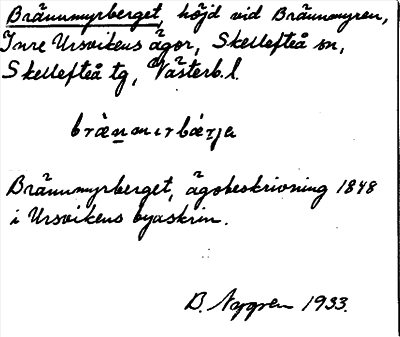 Brännmyrberget, höjd vid Brännmyren,
Inre Ursvikens ägor, Skellefteå sn,
Skellefteå tg, Västerb.l.
brä̀n̲mırbǽrjə
Brännmyrberget, ägobeskrivning 1848
i Ursvikens byaskrin.
B. Nygren 1933.